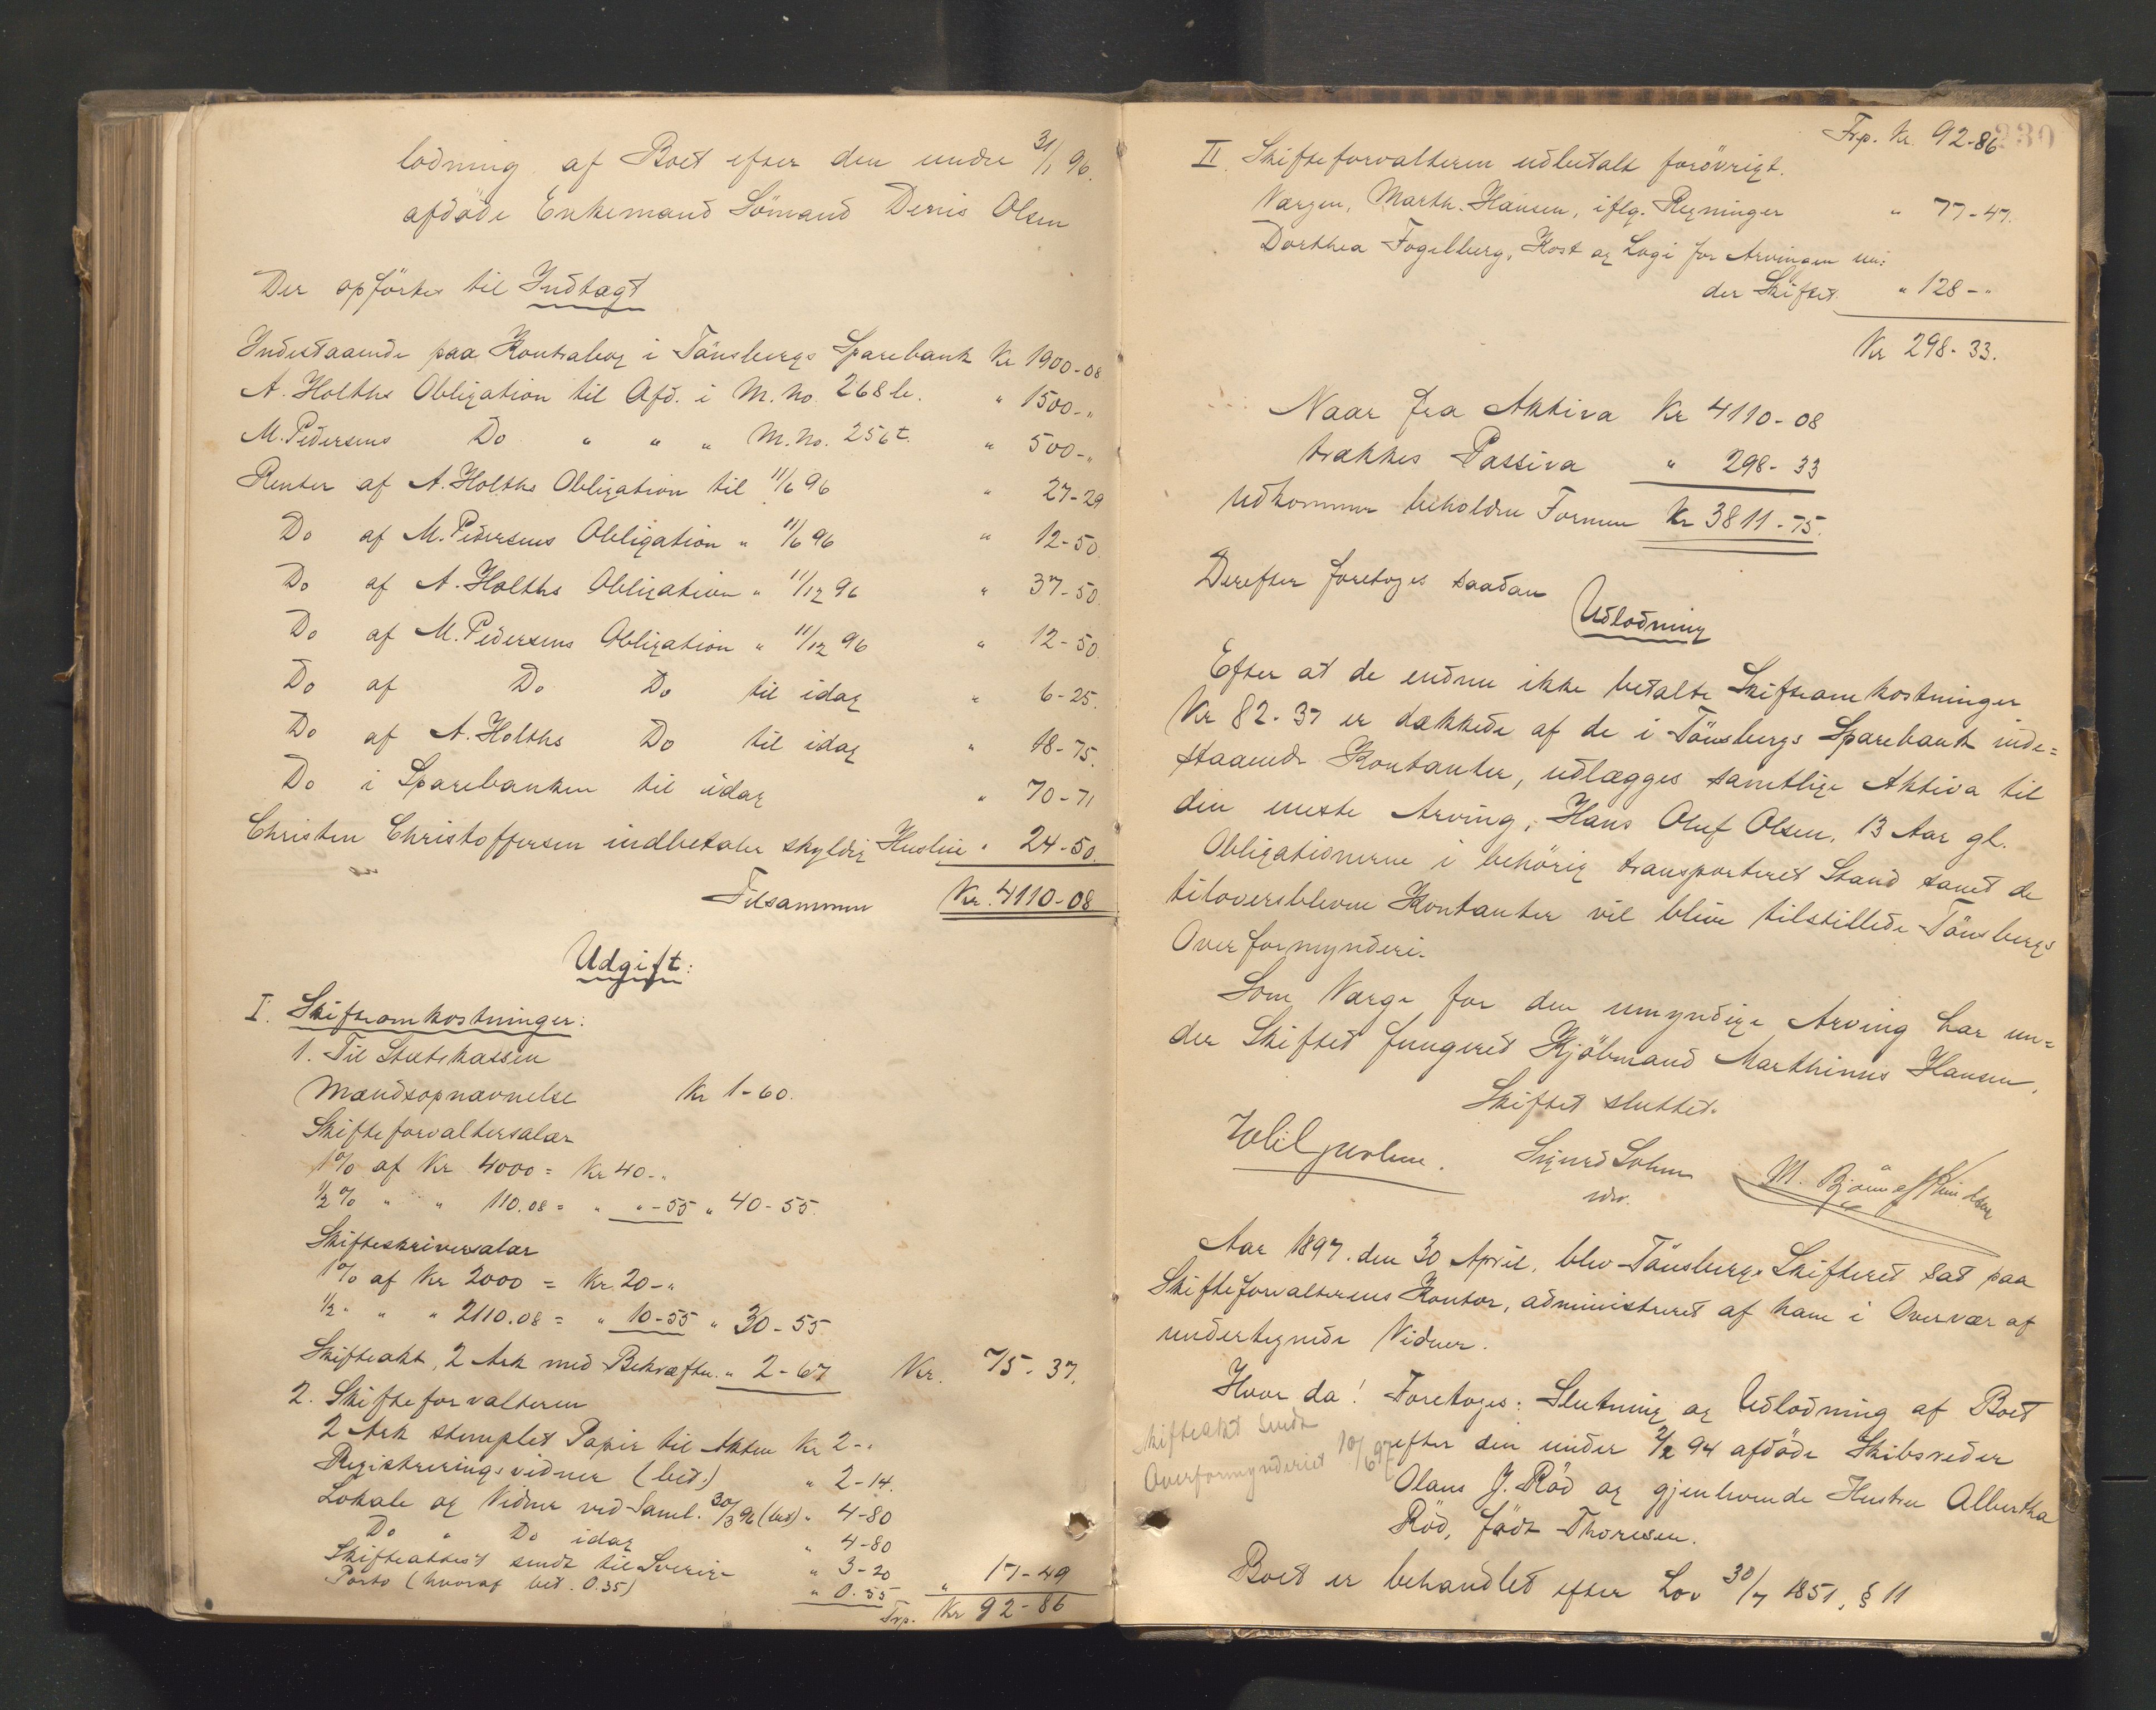 lodning af Boet efter den under 31/1 96.
afdøde Enkemand Sömand Denis Olsen
Der opförtes til Indtægt
Indestaaende paa Kontrabog i Tönsbergs Sparebank Kr 1900-08
A. Holths Obligation til Afd. i M. No. 268 b. " 1500-"
M. Pedersens Do " " " M. No. 256 t. " 500-"
Renter af A. Holths Obligation til 11/6 96 " 27-29
Do af M. Pedersens Obligation " 11/6 96 " 12-50
Do af A. Holths Obligation " 11/12 96 " 37-50.
Do af M. Pedersens Obligation " 11/12 96 " 12-50.
Do af Do Do til idag " 6-25.
Do af A. Holths Do til idag " 18-75.
Do i Sparebanken til idag " 70-71
Christen Christoffersen indbetaler skyldig Husleie " 24-50.
Tilsammen Kr. 4110-08
Udgift:
I. Skifteomkostninger:
1. Til Statskassen
Mandsopnævnelse Kr 1-60.
Skifteforvaltersalær
1% af Kr 4000 = Kr 40-"
1/2% " " 110.08 = " "-55 " 40-55.
Skifteskriversalær
1% af Kr 2000 = Kr. 20-"
1/2 " " " 2110.08 = " 10-55 " 30-55
Skifteakt, 2 Ark med Bekræftn. " 2-67 Kr. 75-37.
2. Skifteforvalteren
2 Ark stemplet Papir til Akten Kr 2-"
Registreringsvidner (bet.) " 2-14.
Lokale og Vidner ved Saml. 30/3 96 (bet) " 4-80
Do " Do idag " 4-80
Skifteattest sendt til Sverige " 3-20
Porto (hvoraf bet. 0.35) " 0.55 " 17-49
Trp. Kr 92-86
230
Trp. Kr. 92-86
II. Skifteforvalteren udbetalt forövrigt.
Værgen, Marth. Hansen, iflg. Regninger " 77-47.
Dorthea Fogelberg, Kost og Logi for Arvingen un:
der Skiftet " 128-"
Kr 298-33.
Naar fra Aktiva Kr 4110-08
trækkes Passiva " 298-33
udkommer beholden Formue Kr 3811-75.
Derefter foretoges saadan
Udlodning
Efter at de endnu ikke betalte Skifteomkostninger
Kr 82-37 er dækkede af de i Tönsbergs Sparebank inde=
staaende Kontanter, udlægges samtlige Aktiva til
den eneste Arving, Hans Oluf Olsen, 13 Aar gl.
Obligationerne i behörig transporteret Stand samt de
tiloversblevne Kontanter vil blive tilstillede Tönsbergs
Overformynderi.
Som Værge for den umyndige Arving har un=
der Skiftet fungeret Kjöbmand Marthinius Hansen.
Skiftet sluttet.
Aar 1897. den 30 April, blev Tönsbergs Skifteret sat paa
Skifteforvalterens Kontor, administreret af ham i Overvær af
undertegnede Vidner.
Hvor da! Foretoges: Slutning og Udlodning af Boet
efter den under 2/2 94 afdöde Skibsreder
Olaus J. Röd og gjenlevende Hustru Albertha
Röd, född Thoresen.
Skifteakt sendt
Overformynderiet 10/6 97
Boet er behandlet efter Lov 30/7 1851, § 11